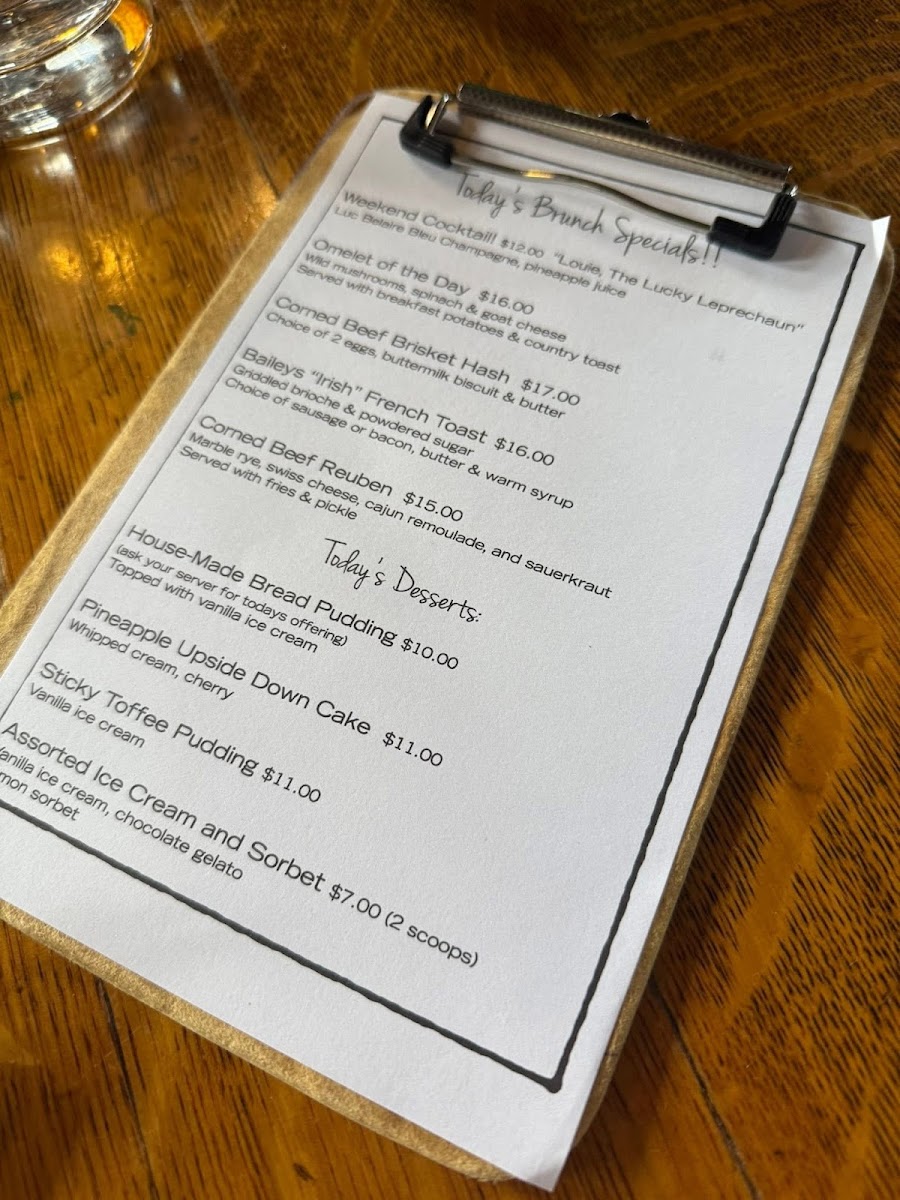 Today's Brunch Specials!!
Weekend Cocktail! $12.00 "Louie, The Lucky Leprechaun"
Luc Belaire Bleu Champagne, pineapple juice
Omelet of the Day $16.00
Wild mushrooms, spinach & goat cheese
Served with breakfast potatoes & country toast
Corned Beef Brisket Hash $17.00
Choice of 2 eggs, buttermilk biscuit & butter
Baileys "Irish" French Toast $16.00
Griddled brioche & powdered sugar
Choice of sausage or bacon, butter & warm syrup
Corned Beef Reuben $15.00
Marble rye, swiss cheese, cajun remoulade, and sauerkraut
Served with fries & pickle
Today's Desserts:
House-Made Bread Pudding $10.00
(ask your server for todays offering)
Topped with vanilla ice cream
Pineapple Upside Down Cake $11.00
Whipped cream, cherry
Sticky Toffee Pudding $11.00
Vanilla ice cream
Assorted Ice Cream and Sorbet $7.00 (2 scoops)
Vanilla ice cream, chocolate gelato
mon sorbet